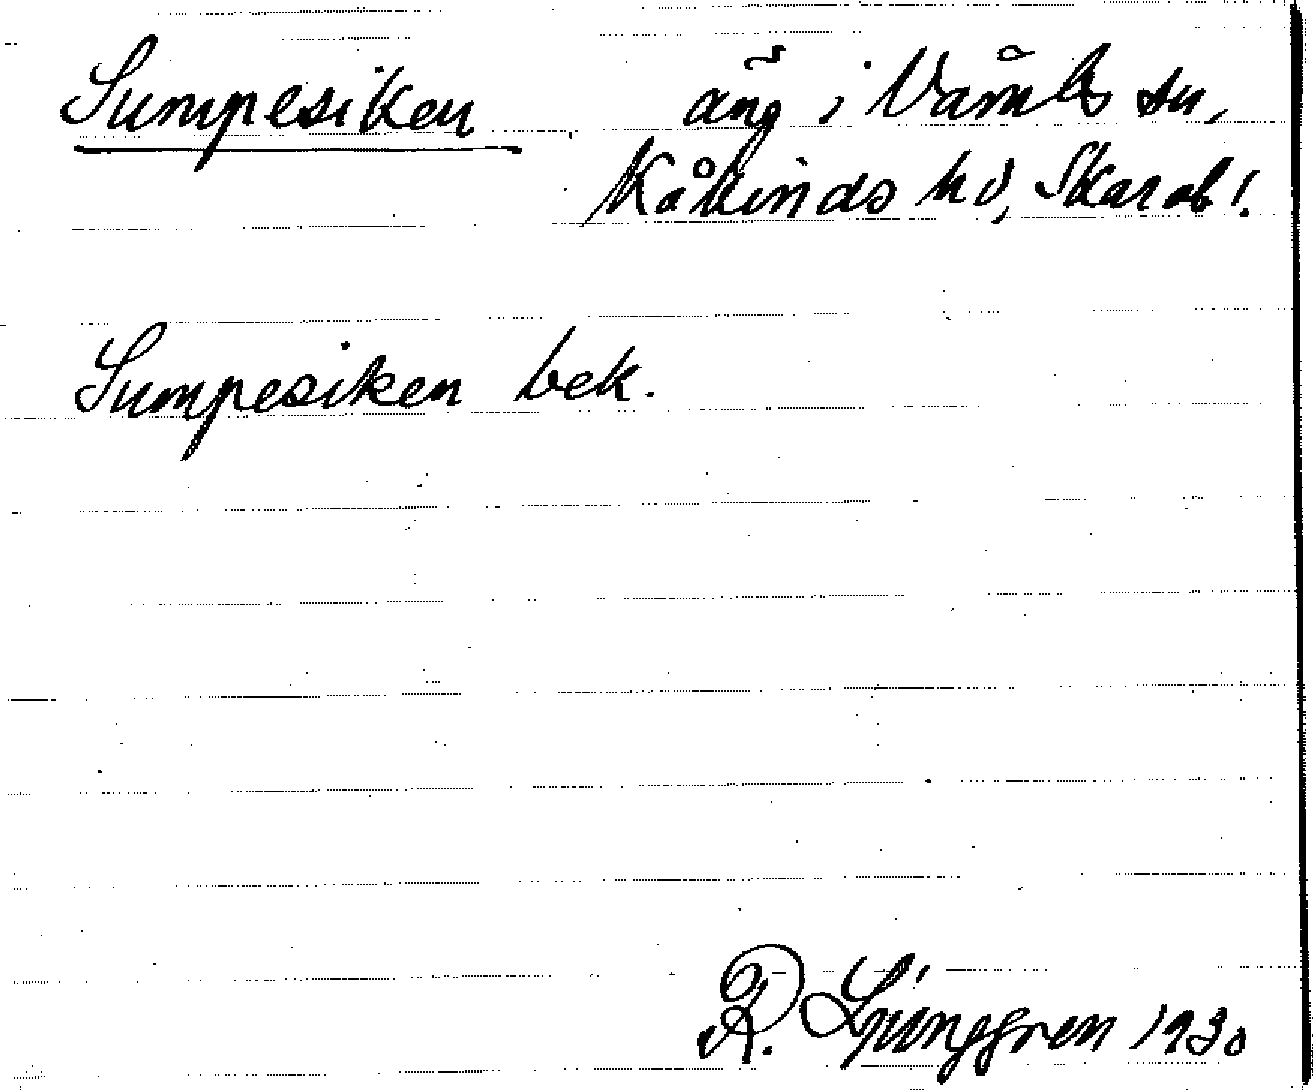 Sumpesiken äng i Våmbs sn,
Kåkinds hd, Skarab!.
Sumpesiken bek.
R. Ljunggren 1930